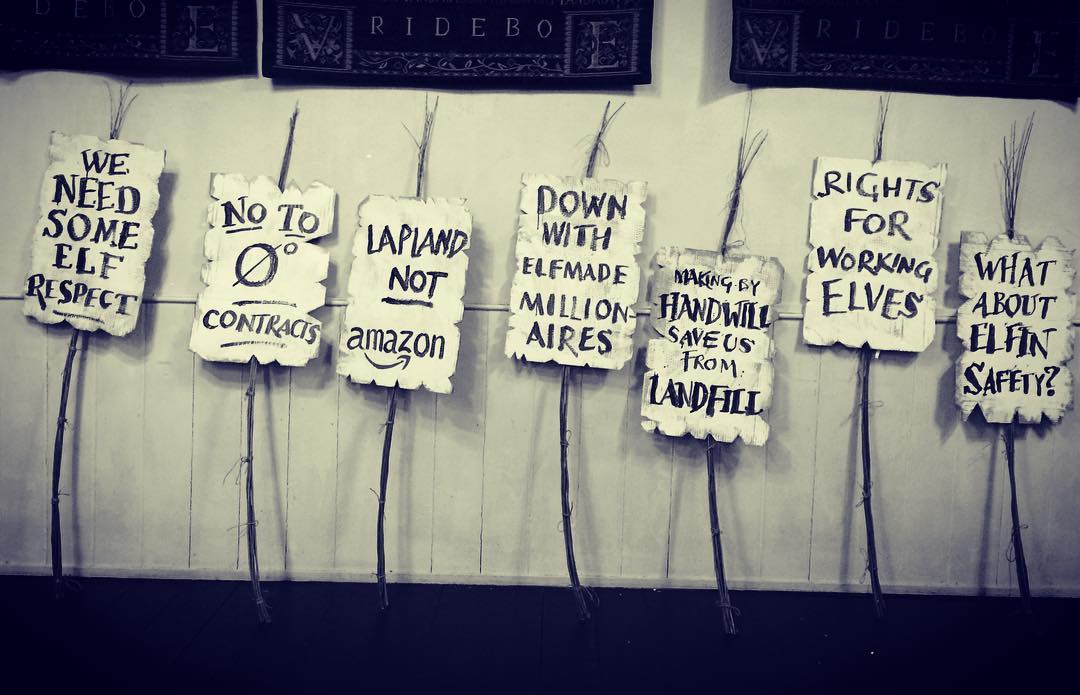 DEBO
E
V
RIDEBO
E
V
RIDEBO
E
WE
NEED
SOME
ELF
RESPECT
NO TO
0°
CONTRACTS
LAPLAND
NOT
amazon
DOWN
WITH
ELFMADE
MILLION-
AIRES
MAKING BY
HAND WILL
SAVE US
FROM
LANDFILL
RIGHTS
FOR
WORKING
ELVES
WHAT
ABOUT
ELFIN
SAFETY?